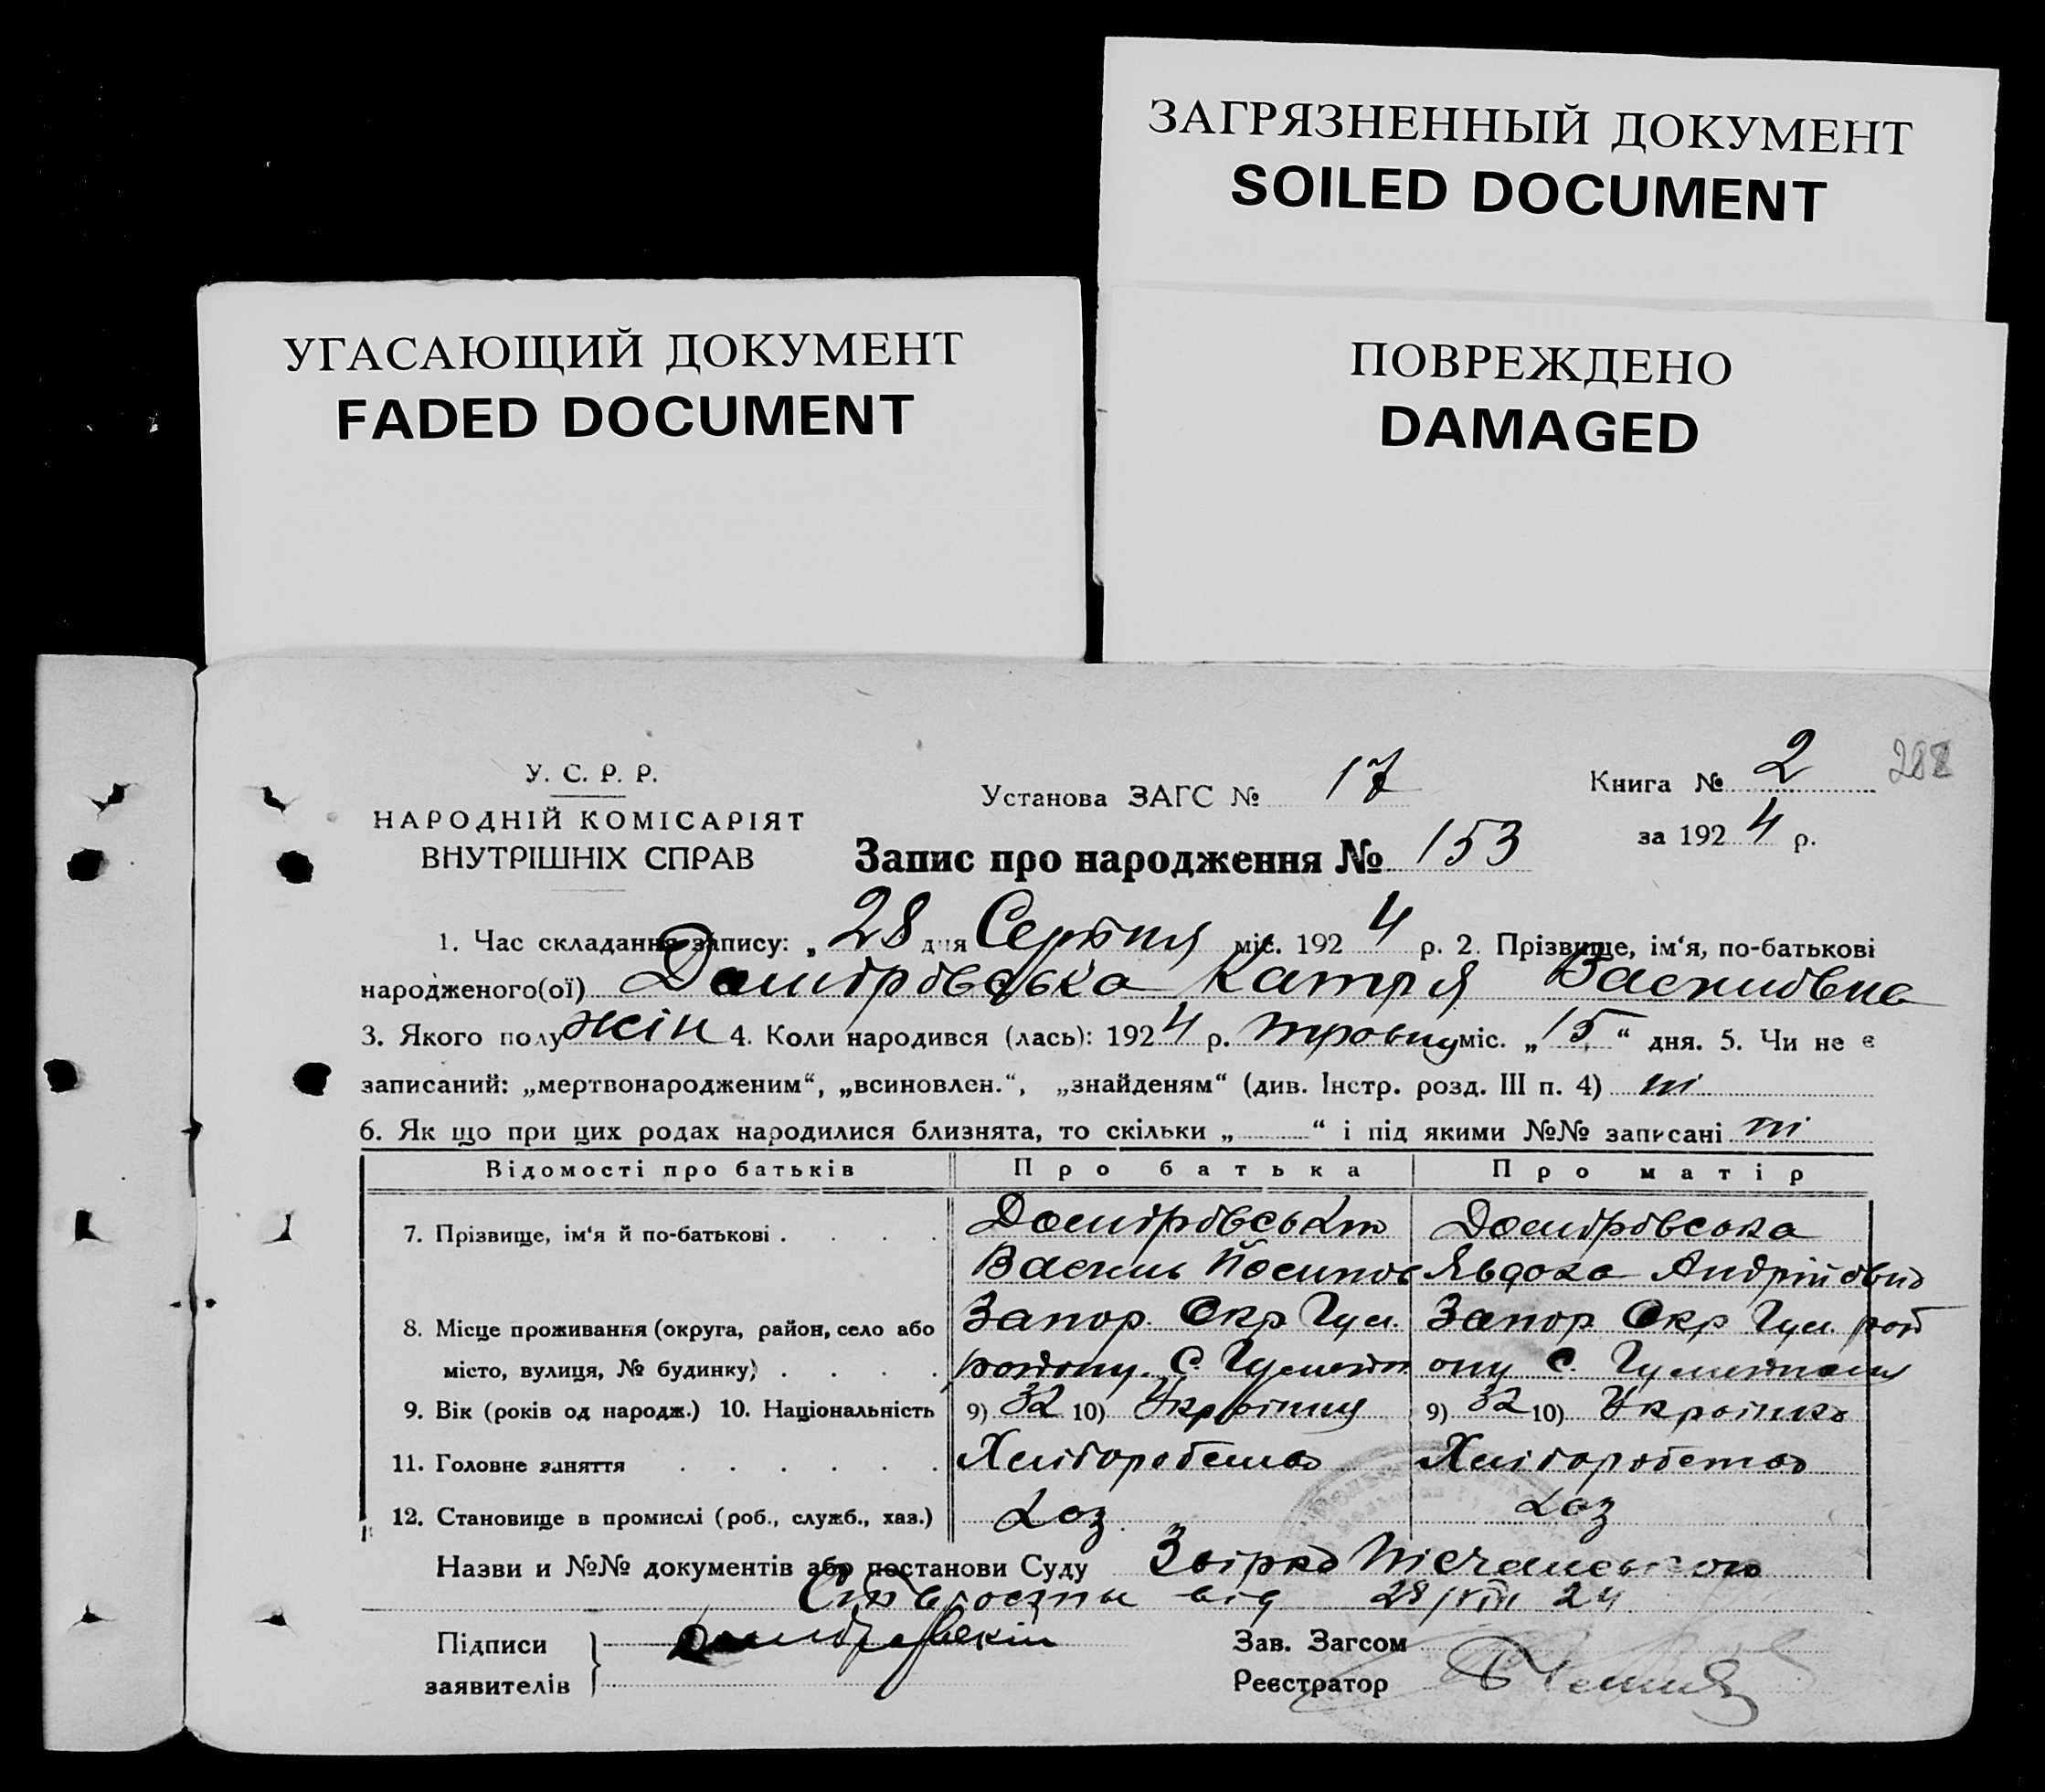 ЗАГРЯЗНЕННЫЙ ДОКУМЕНТ
SOILED DOCUMENT
УГАСАЮЩИЙ ДОКУМЕНТ
FADED DOCUMENT
ПОВРЕЖДЕНО
DAMAGED
У. С. Р. Р.
НАРОДНІЙ КОМІСАРІЯТ
ВНУТРІШНІХ СПРАВ
Установа ЗАГС № 17
Книга № 2
за 1924 р.
Запис про народження № 153
1. Час складання запису: „ 28 дня Серпня міс. 1924 р. 2. Прізвище, ім‘я, по-батькові
народженого(ої) Катря Василівна
3. Якого полу жін 4. Коли народився (лась): 1924 р. травня міс. „15“ дня. 5. Чи не є
записаний: „мертвонародженим“, „всиновлен.“, „знайденям“ (див. Інстр. розд. III п. 4) ні
6. Як що при цих родах народилися близнята, то скільки „ “ і під якими №№ записані ні
Відомості про батьків Про батька Про матір
7. Прізвище, ім‘я й по-батькові
Василь Йосипов Явдоха Андрійовна
8. Місце проживання (округа, район, село або Запор. Окр Гул. Запор Окр Гул. рай
місто, вулиця, № будинку) району. С. ону С.
9. Вік (років од народж.) 10. Національність 9) 32 10) Українец 9) 32 10) Українка
11. Головне заняття Хлібороботво Хлібороботво
12. Становище в промислі (роб., служб., хаз.) Хоз. Хоз
Назви и №№ документів або постанови Суду
від 28/VIII 24
Підписи
заявителів
Зав. Загсом
Реєстратор